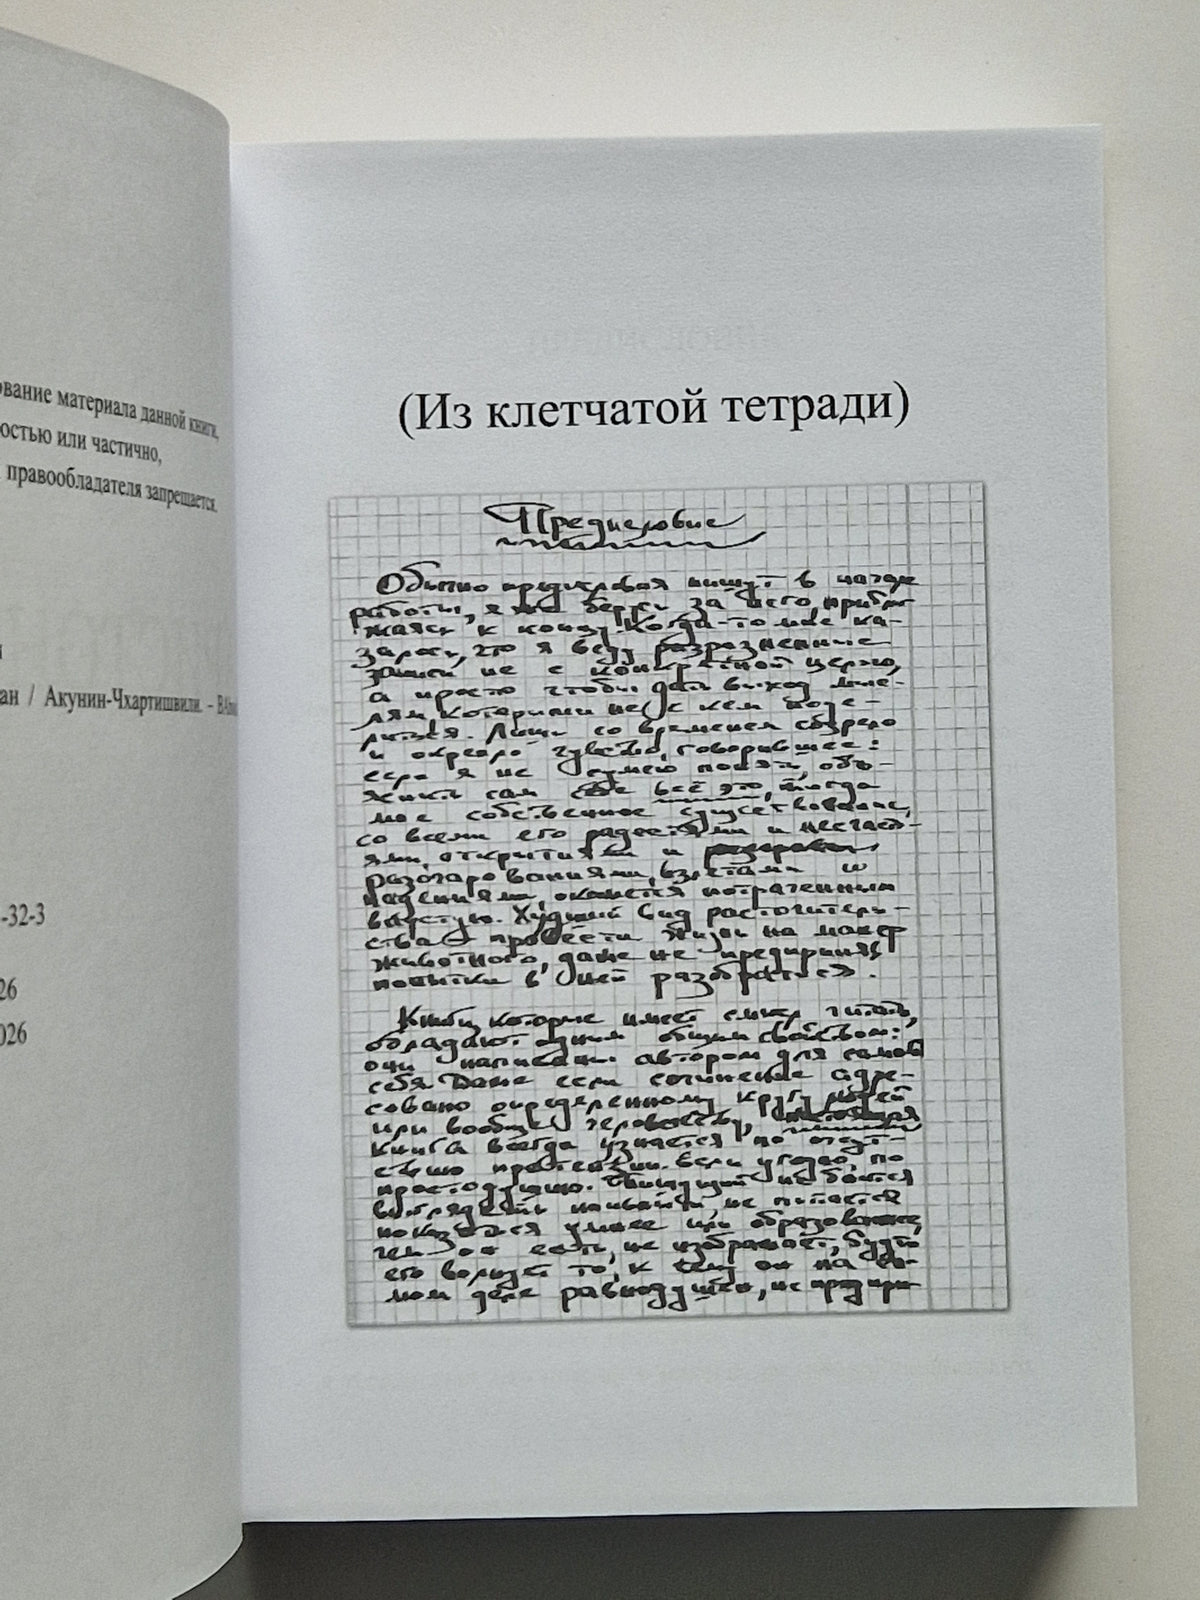 ование материала данной книги,
остью или частично,
правообладателя запрещается.
ан / Акунин-Чхартишвили. –
-32-3
26
026
(Из клетчатой тетради)
Предисловие
Обычно предисловия пишут в начале
работы, я же берусь за него, прибли-
жаясь к концу. Когда-то мне ка-
залось, что я веду разрозненные
записи не с конкретной целью,
а просто чтобы дать выход мыс-
лям, которыми не с кем поде-
литься. Лишь со временем созрело
и окрепло чувство, говорившее:
если я не сумею понять, объ-
яснить сам себе всё это, тогда
мое собственное существование,
со всеми его радостями и несчасть-
ями, открытиями и
разочарованиями, взлетами и
падениями, окажется потраченным
впустую. Худший вид расточитель-
ства – провести жизнь на манер
животного, даже не предприняв
попытки в ней разобраться.
Книги, которые имеет смысл читать,
обладают одним общим свойством:
они написаны автором для самого
себя. Даже если сочинение адре-
совано определенному кругу людей
или вообще человечеству, настоящая
книга всегда узнается по отсут-
ствию претензии, если угодно, по
простодушию. Пишущий не боится
выглядеть наивным, не пытается
показаться умнее или образованнее,
чем он есть, не изображает, будто
его волнует то, к чему он на са-
мом деле равнодушен, не